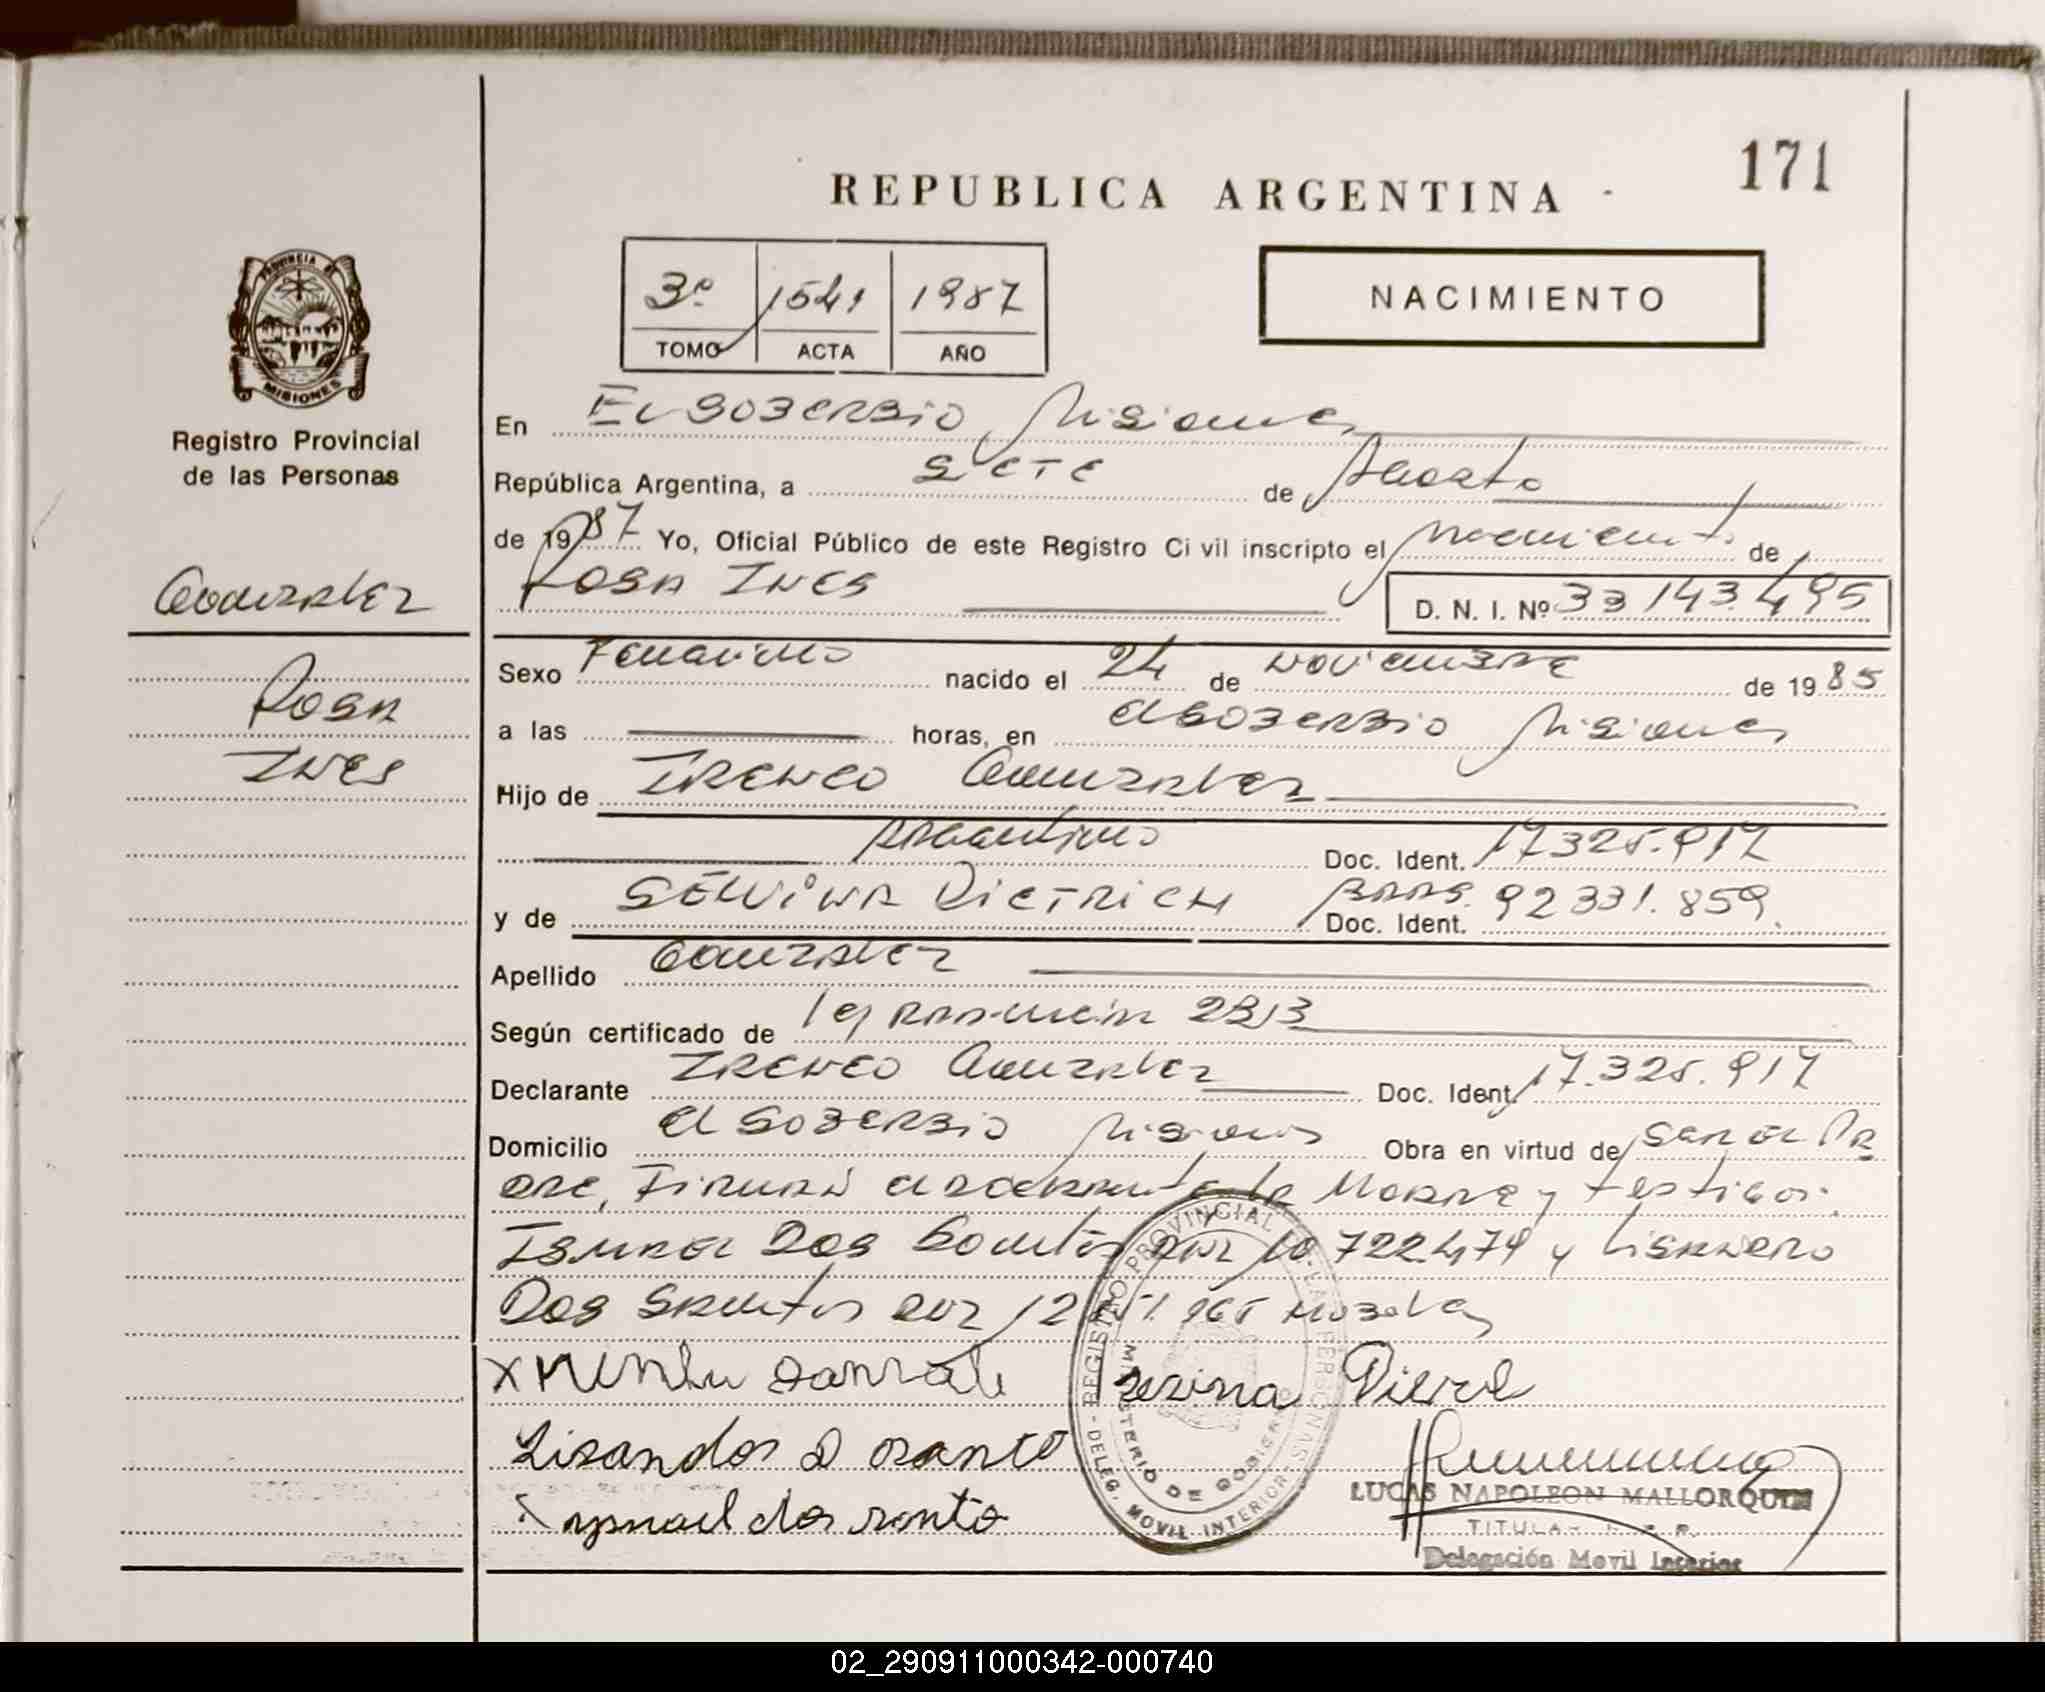 171
REPUBLICA ARGENTINA
3º 1541 1987
TOMO ACTA AÑO
NACIMIENTO
PROVINCIA DE
MISIONES
Registro Provincial
de las Personas
Gonzalez
Rosa
Ines
En El Soberbio Misiones
República Argentina, a siete de Agosto
de 1987 Yo, Oficial Público de este Registro Ci vil inscripto el nacimiento de
Rosa Ines D. N. I. Nº 33 143.495
Sexo Femenino nacido el 24 de noviembre de 1985
a las horas, en El Soberbio Misiones
Hijo de Ireneo Gonzalez
Argentino Doc. Ident. 17.325.917
y de Selvina Dietrich Bras. Doc. Ident. 92 331.859.
Apellido Gonzalez
Según certificado de Ley 2313
Declarante Ireneo Gonzalez Doc. Ident. 17.325.917
Domicilio El Soberbio Misiones Obra en virtud de ser el Pa
dre, Firman el declarante la Madre y testigos:
Ismael Dos Santos DNI 10 722.479 y Lisandro
Dos Santos DNI 12
Gonzale
Lisandos D osanto
dos santo
REGISTRO PROVINCIAL DE LAS PERSONAS
MINISTERIO DE GOBIERNO
DELEG. MOVIL INTERIOR
LUCAS NAPOLEON MALLORQUIN
TITULAR
Delegación Movil Interior
02_290911000342-000740